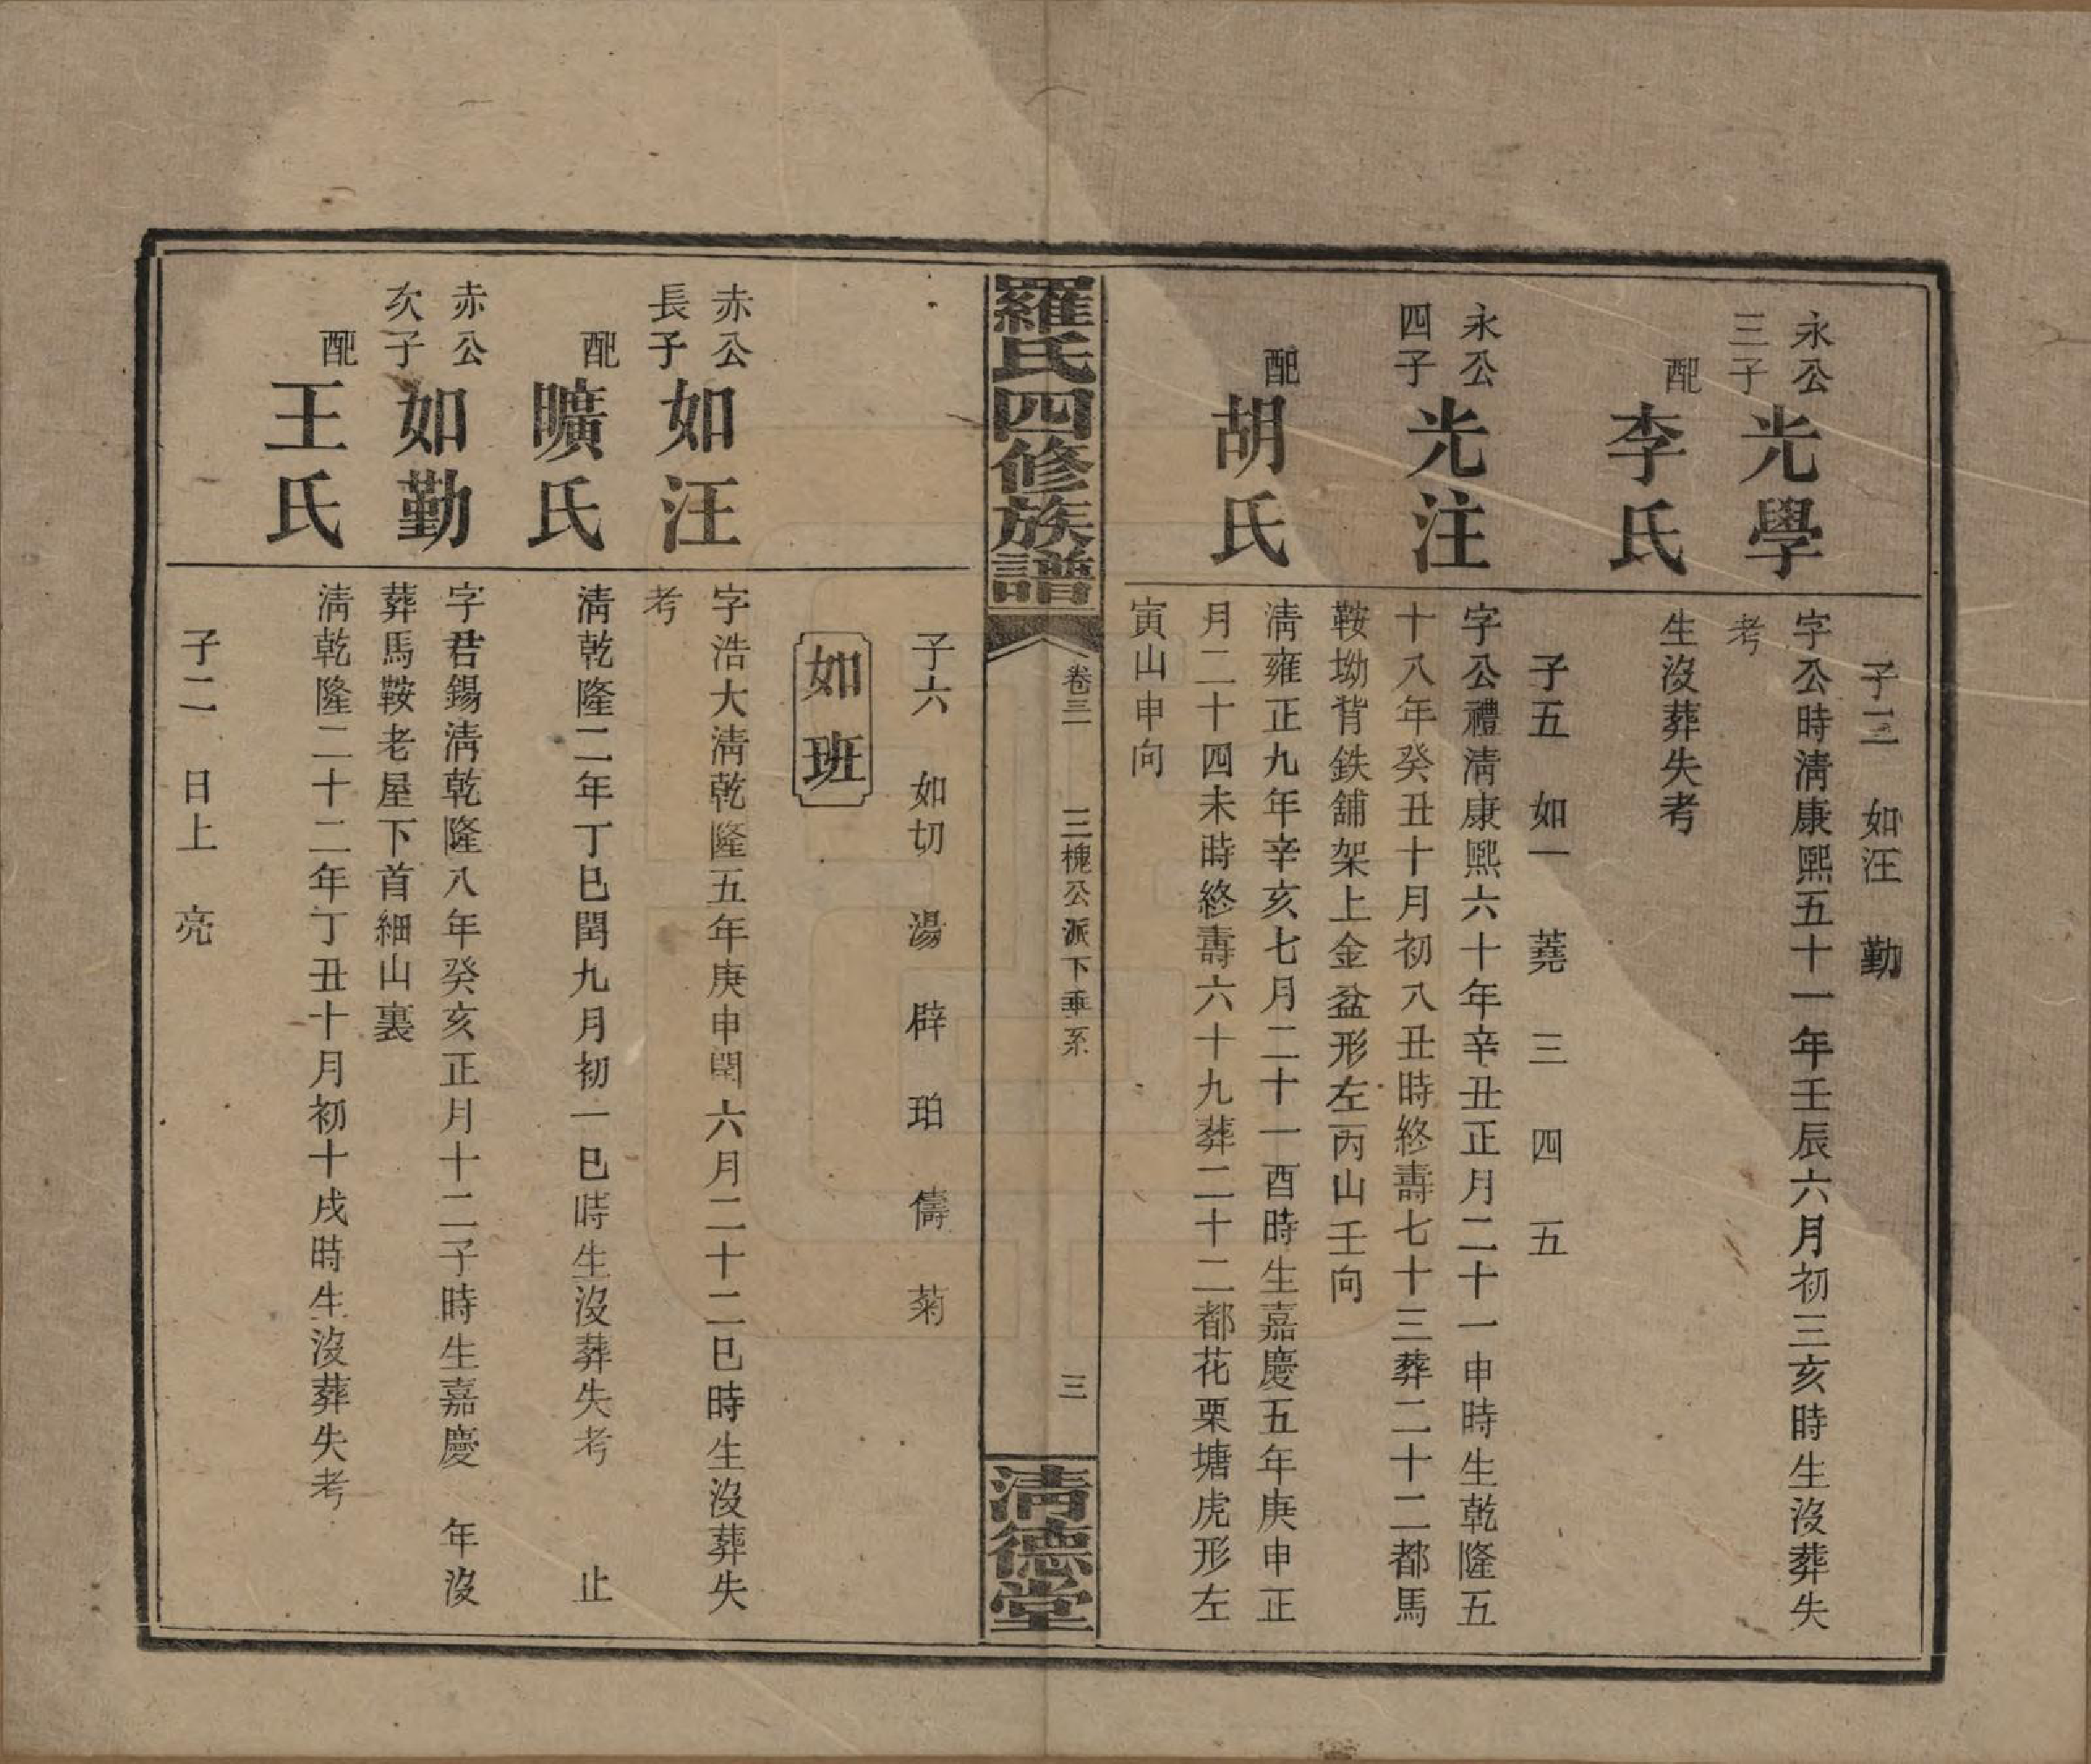 子三　如汪　勤
永公三子　光學　字公時清康熙五十一年壬辰六月初三亥時生沒葬失
考
配　李氏　生沒葬失考
子五　如一　蕘　三　四　五
永公四子　光注　字公禮清康熙六十年辛丑正月二十一申時生乾隆五
十八年癸丑十月初八丑時終壽七十三葬二十二都馬
鞍坳背鉄舖架上金盆形左丙山壬向
配　胡氏　清雍正九年辛亥七月二十一酉時生嘉慶五年庚申正
月二十四未時終壽六十九葬二十二都花栗塘虎形左
寅山申向
羅氏四修族譜　卷三　三槐公派下垂系　三　清德堂
子六　如切　湯　辟　珀　儔　菊
如班
赤公長子　如汪　字浩大清乾隆五年庚申閏六月二十二巳時生沒葬失
考
配　曠氏　清乾隆二年丁巳閏九月初一巳時生沒葬失考　止
赤公次子　如勤　字君錫清乾隆八年癸亥正月十二子時生嘉慶　年沒
葬馬鞍老屋下首細山裏
配　王氏　清乾隆二十二年丁丑十月初十戌時生沒葬失考
子二　日上　亮